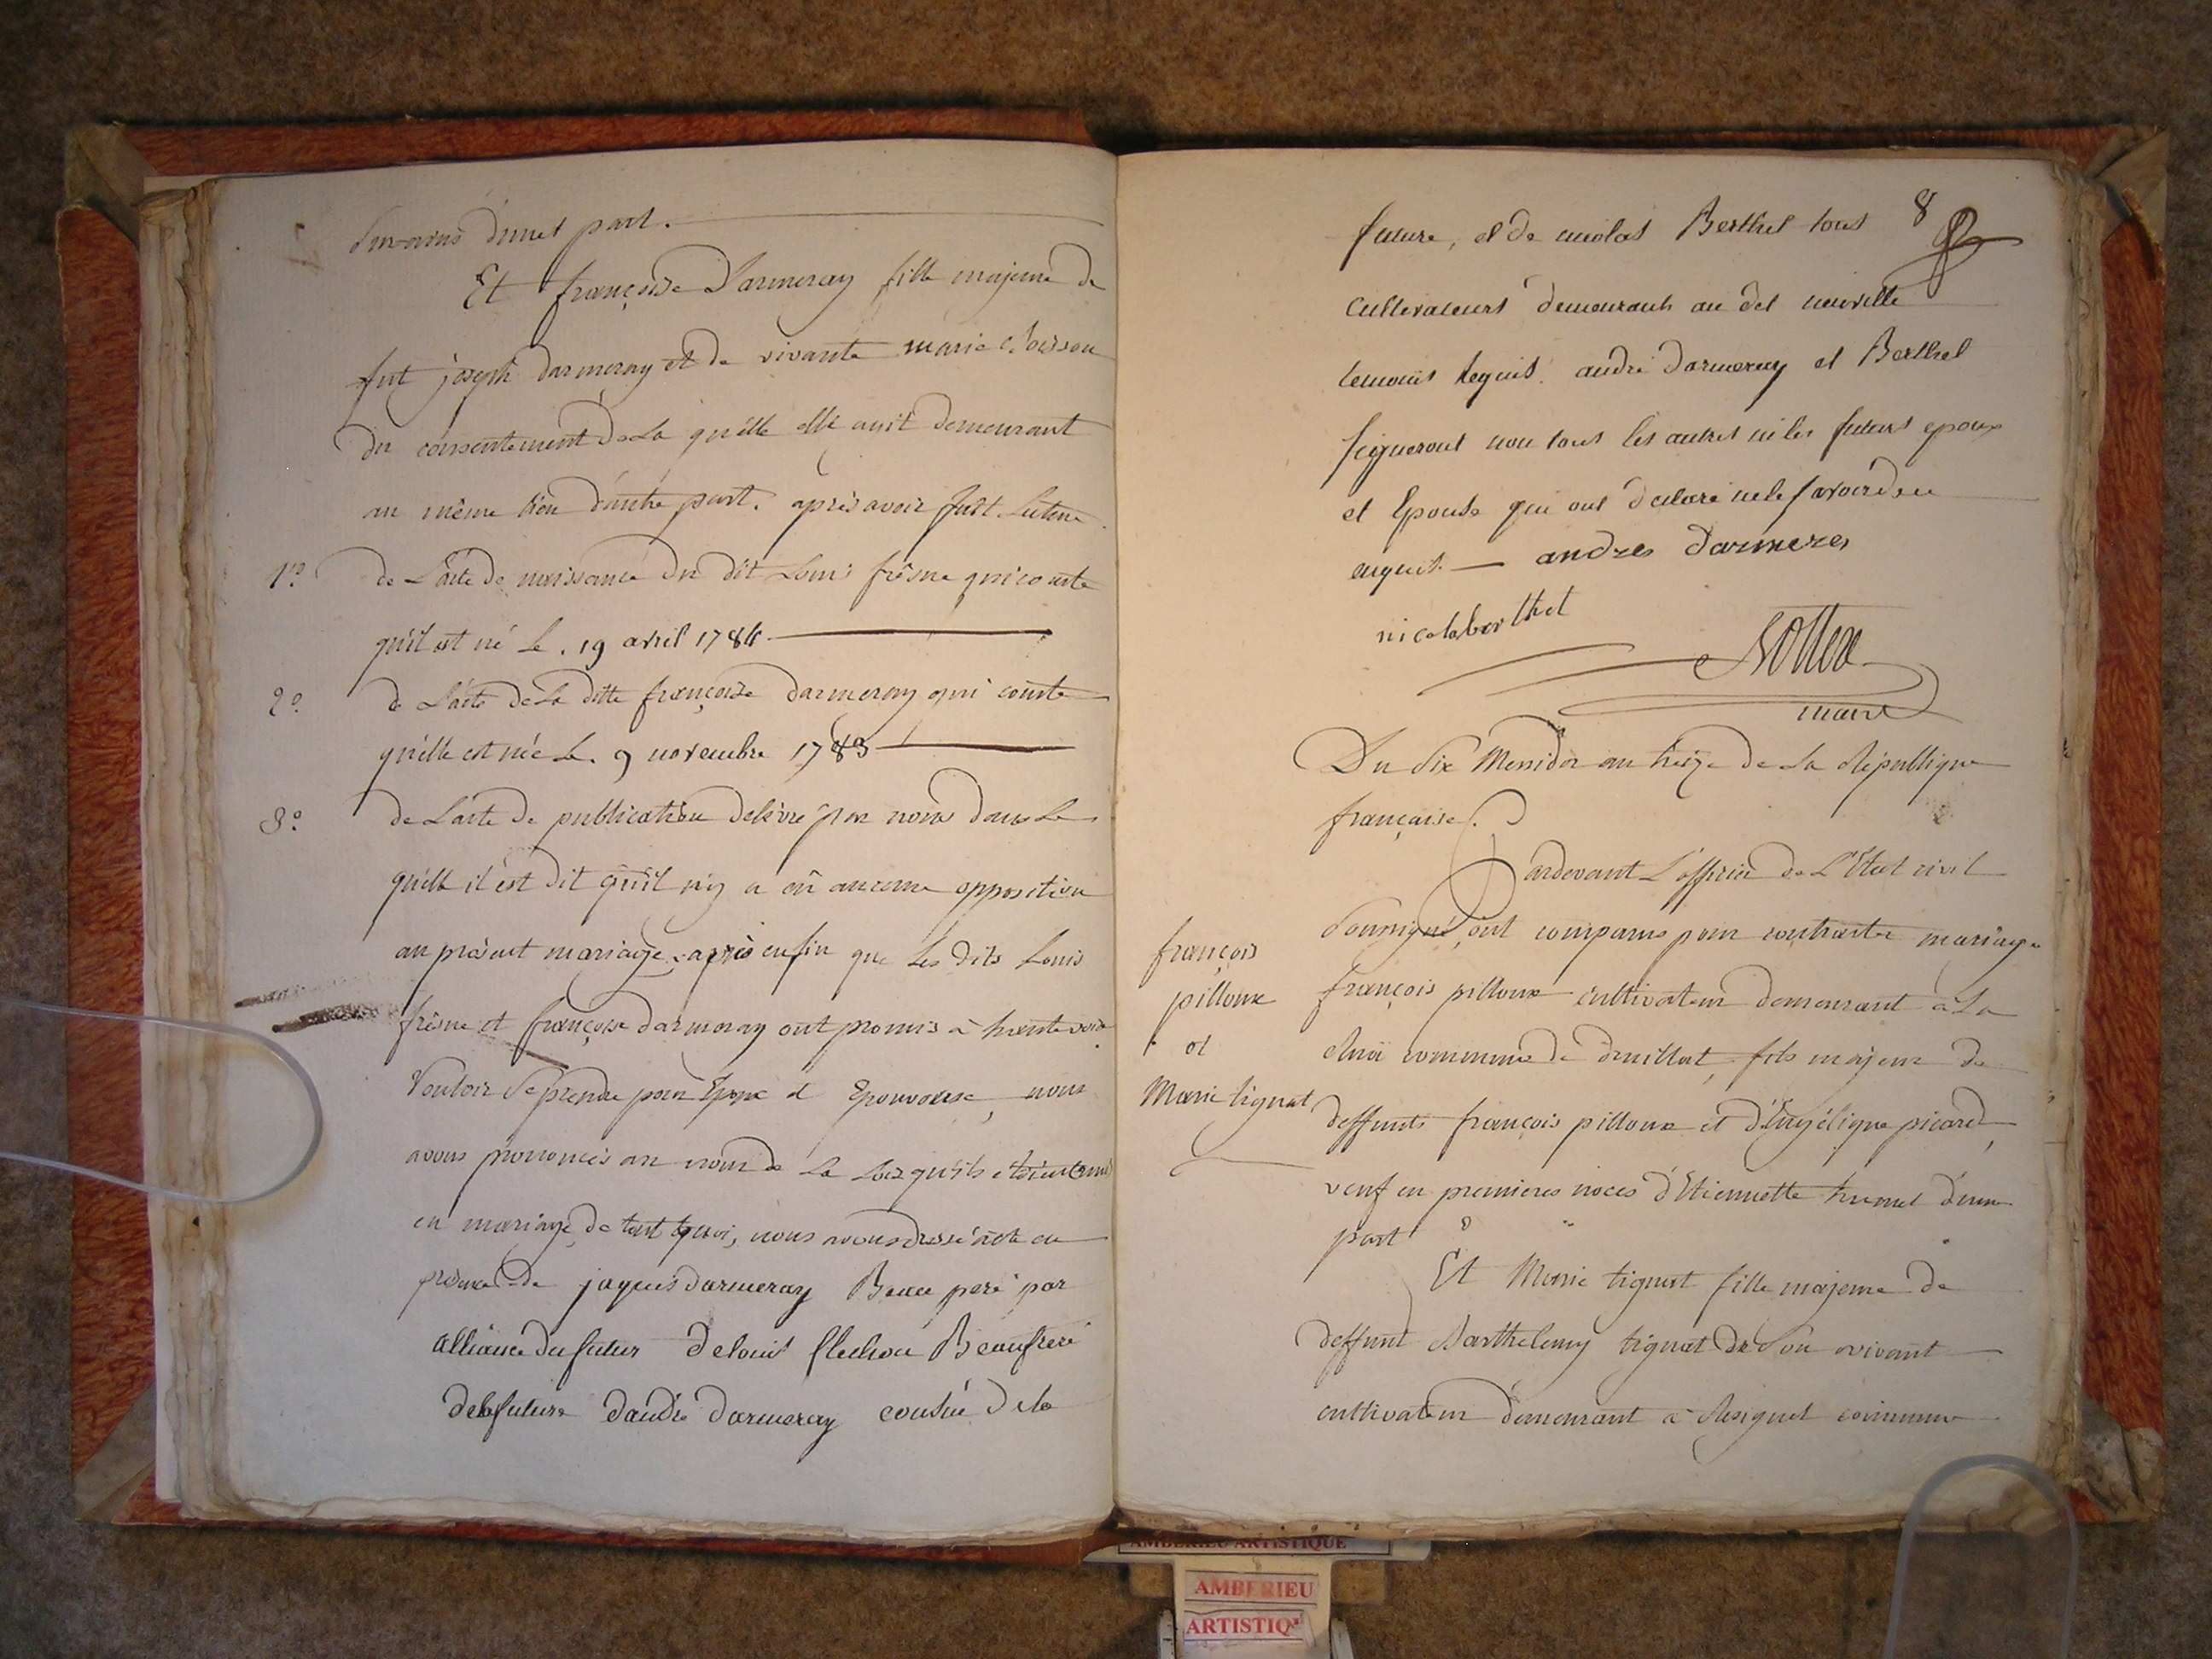 d'une part.
Et françoise Darmeray fille majeure de
fut joseph darmeray et de vivante marie
du consentement de La qu'elle elle avit demeurant
au même lieu d'autre part. après avoir fait Lecture
1º de L'acte de naissance du dit Louis frêsne qui conste
qu'il est né Le. 19 avril 1784
2º de L'acte de La ditte françoise darmeray qui conste
qu'elle est née Le. 9 novembre 1783
3º de L'acte de publication delivré par nous dans Le
quelle il est dit qu'il n'y a eû aucune opposition
au présent mariage, après enfin que Les dits Louis
frêsne et françoise darmeray ont promis à haute voix
Vouloir Se prendre pour Epoux et Epouvouse, nous
avons prononcés au nom de La Loix qu'ils étoient unis
en mariage, de tout quoi, nous avons dressé acte en
présence de jaques darmeray Beau pere par
alliance du futur de louis flechon Beaufrere
de la future d'andré darmeray cousin de la
8
future, et de nicolas Berthet tous
cultivateurs demeurants au det neuville
temoins requis. andré darmeray et Berthet
signeront non tous les autres ni les futurs epoux
et Epouse qui ont declaré ne le savoir de ce
enquis — andres darmeres
nicolaberthet
maire
Du dix Messidor an treize de La République
française.
Pardevant L'officier de L'Etat civil
Soussigné, ont comparus pour contracter mariage
françois
pilloux
et
Marie tignat
françois pilloux cultivateur demeurant à La
commune de druillat, fils majeur de
deffunts françois pilloux et d'Angélique picard,
veuf en premieres noces d'Etiennette d'une
part
Et Marie tignat fille majeure de
deffunt Barthelemy tignat de Son vivant
cultivateur demeurant à Rsignel commune